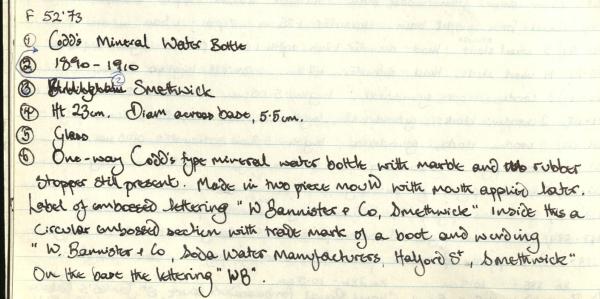 F 52'73
① Codd's Mineral Water Bottle
② 1890 - 1910
③ Smethwick
④ Ht 23cm. Diam across base, 5.5cm.
⑤ Glass
⑥ One-way Codd's type mineral water bottle with marble and rubber
stopper still present. Made in two piece mould with mouth applied later.
Label of embossed lettering "W Bannister & Co, Smethwick" Inside this a
circular embossed section with trade mark of a boot and wording
"W. Bannister & Co, Soda Water Manufacturers, Halford St, Smethwick"
On the base the lettering "WB".